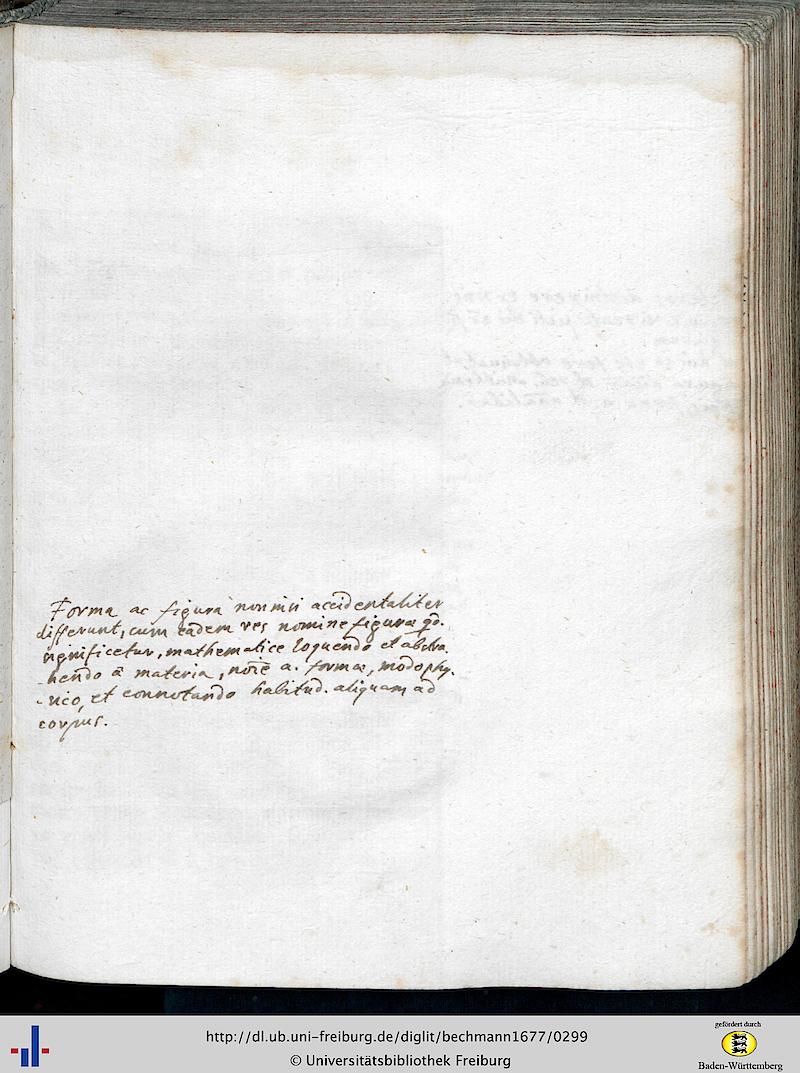 Forma ac figura nonnisi accidentaliter
differunt, cum eadem res nomine figuræ qd.
significetur, mathematice loquendo et abstra-
hendo à materia, noīe a. formæ, modo phy-
-sico, et connotando habitud. aliquam ad
corpus.
http://dl.ub.uni-freiburg.de/diglit/bechmann1677/0299
© Universitätsbibliothek Freiburg
gefördert durch
Baden-Württemberg